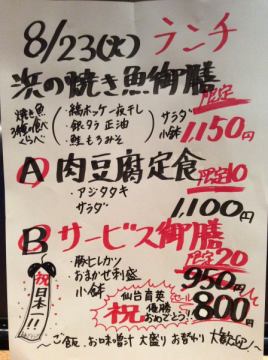 8/23(火) ランチ
浜の焼き魚御膳
限定
焼き魚
3種の食べ
くらべ
・縞ホッケ一夜干し
・銀ダラ正油
・鮭もろみそ
サラダ
小鉢
1,150円
A 肉豆腐定食 限定10
・アジタタキ
サラダ
1,100円
B サービス御膳
限定20
・豚ヒレカツ
・おまかせ刺盛
・小鉢
950円
祝日本一!!
仙台育英
祝優勝
おめでとう!
セール
800円
〜ご飯、お味噌汁 大盛り おかわり 大歓迎〜